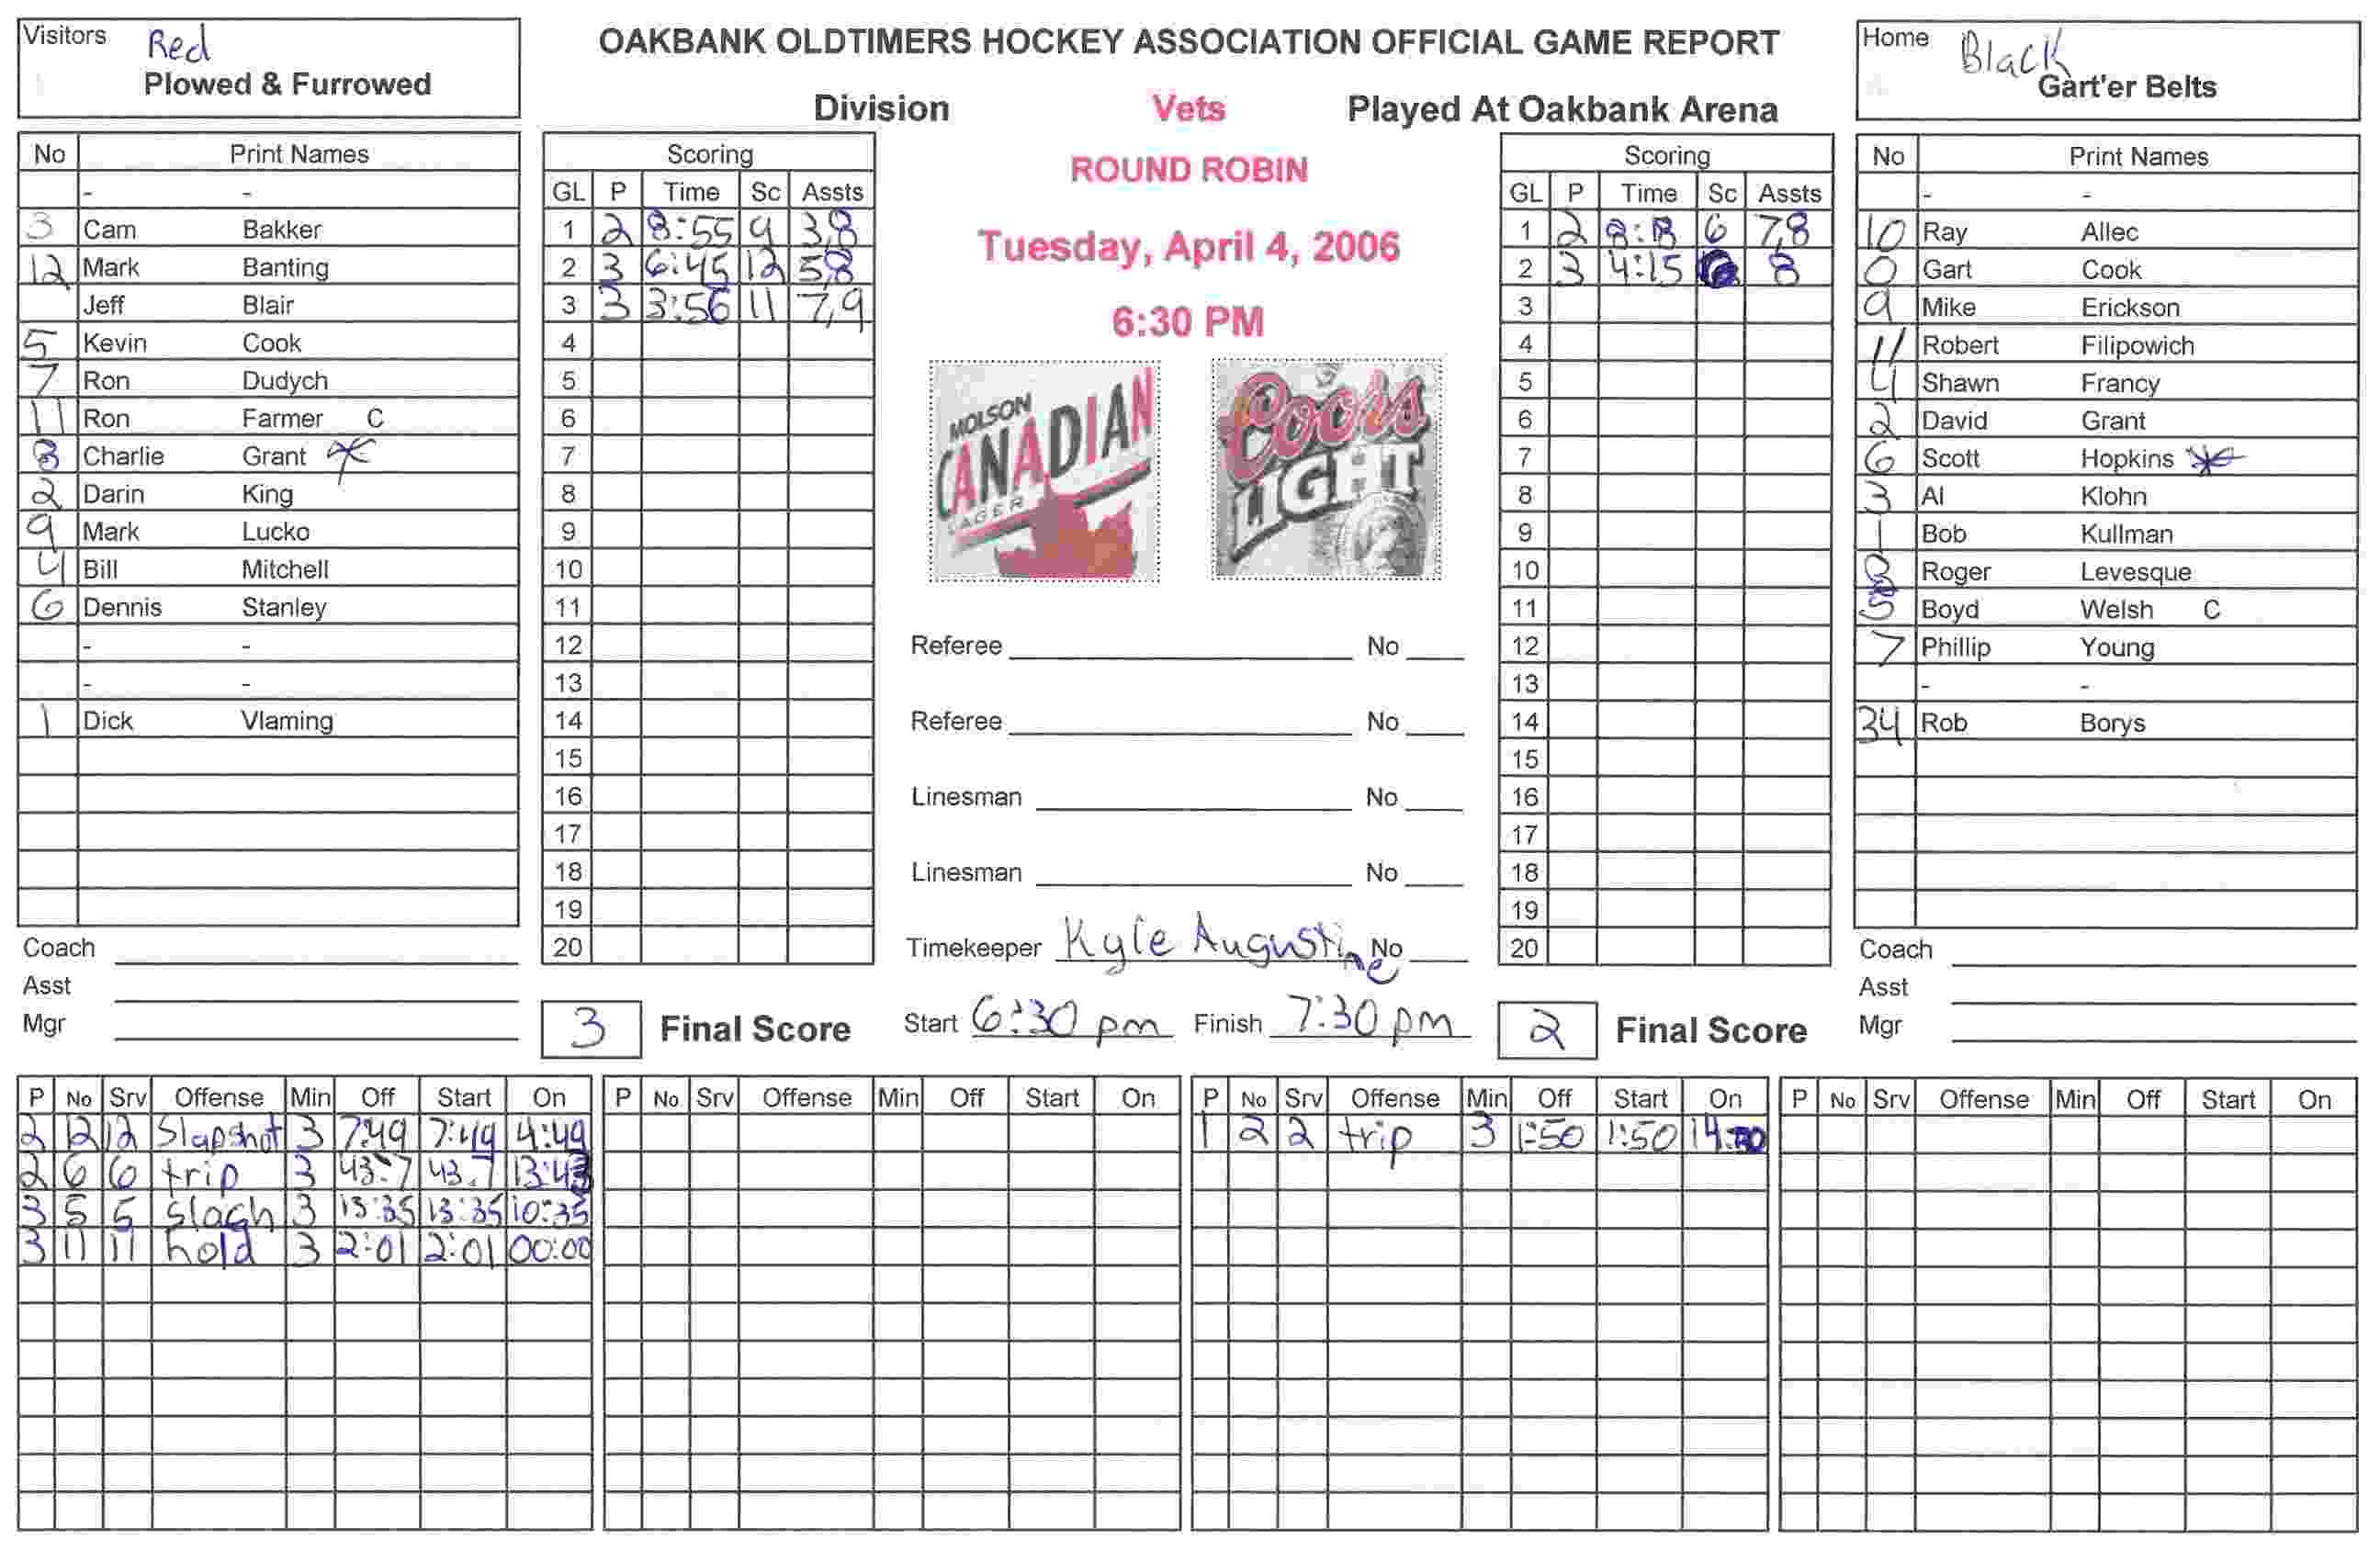 Visitors Red
Plowed & Furrowed
OAKBANK OLDTIMERS HOCKEY ASSOCIATION OFFICIAL GAME REPORT
Division Vets Played At Oakbank Arena
Home Black
Gart'er Belts
ROUND ROBIN
Tuesday, April 4, 2006
6:30 PM
MOLSON
CANADIAN
LAGER
Coors
LIGHT
No Print Names
- -
3 Cam Bakker
12 Mark Banting
Jeff Blair
5 Kevin Cook
7 Ron Dudych
11 Ron Farmer C
8 Charlie Grant
2 Darin King
9 Mark Lucko
4 Bill Mitchell
6 Dennis Stanley
- -
- -
1 Dick Vlaming
Coach
Asst
Mgr
Scoring
GL P Time Sc Assts
1 2 8:55 9 3,8
2 3 6:45 12 5,8
3 3 3:56 11 7,9
4
5
6
7
8
9
10
11
12
13
14
15
16
17
18
19
20
3 Final Score
Referee No
Referee No
Linesman No
Linesman No
Timekeeper Kyle Augustine No
Start 6:30 pm Finish 7:30 pm
Scoring
GL P Time Sc Assts
1 2 6 7,8
2 3 4:15 8
3
4
5
6
7
8
9
10
11
12
13
14
15
16
17
18
19
20
2 Final Score
No Print Names
- -
10 Ray Allec
0 Gart Cook
9 Mike Erickson
11 Robert Filipowich
4 Shawn Francy
2 David Grant
6 Scott Hopkins
3 Al Klohn
1 Bob Kullman
8 Roger Levesque
5 Boyd Welsh C
7 Phillip Young
- -
34 Rob Borys
Coach
Asst
Mgr
P No Srv Offense Min Off Start On
2 12 12 Slapshot 3 7:49 7:49 4:49
2 6 6 trip 3 43.7 43.7 13:43
3 5 5 slash 3 13:35 13:35 10:35
3 11 11 hold 3 2:01 2:01 00:00
P No Srv Offense Min Off Start On
P No Srv Offense Min Off Start On
1 2 2 trip 3 1:50 1:50
P No Srv Offense Min Off Start On